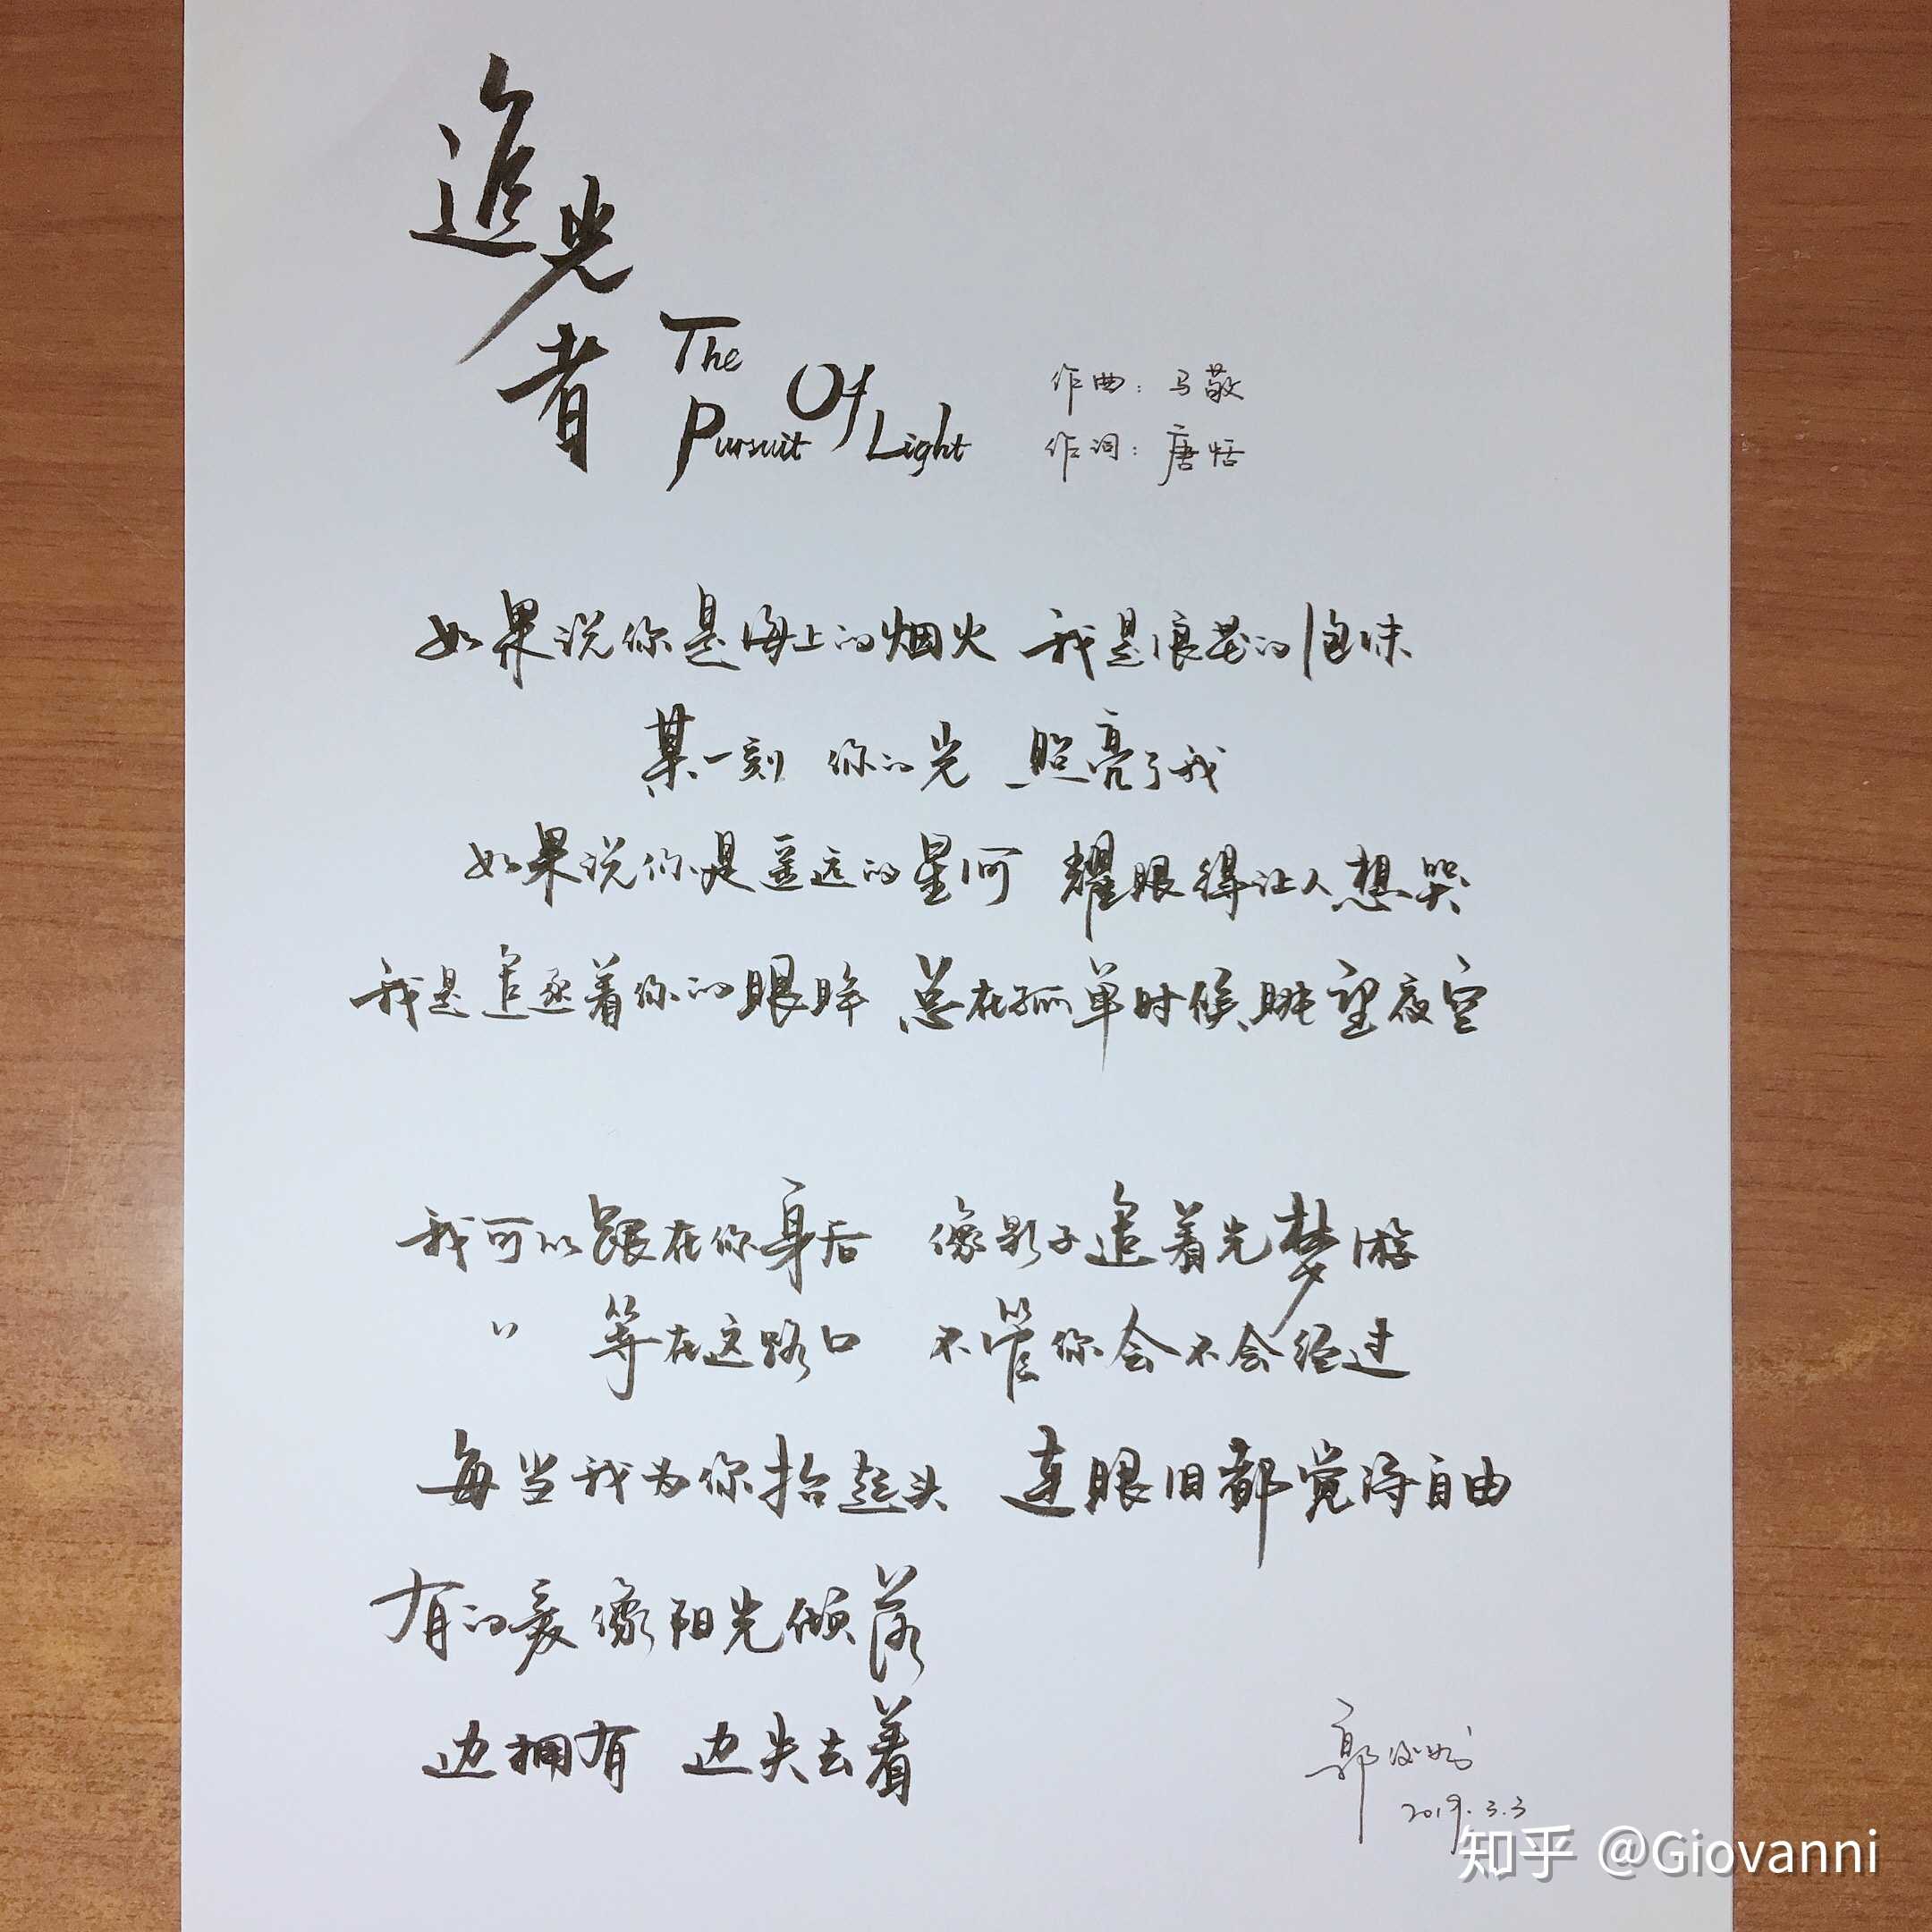 追光者
The Pursuit Of Light
作曲：马敬
作词：唐恬
如果说你是海上的烟火 我是浪花的泡沫
某一刻 你的光 照亮了我
如果说你是遥远的星河 耀眼得让人想哭
我是追逐着你的眼眸 总在孤单时候眺望夜空
我可以跟在你身后 像影子追着光梦游
〃 等在这路口 不管你会不会经过
每当我为你抬起头 连眼泪都觉得自由
有的爱像阳光倾落
边拥有 边失去着
郭
2019.3.3
知乎 @Giovanni